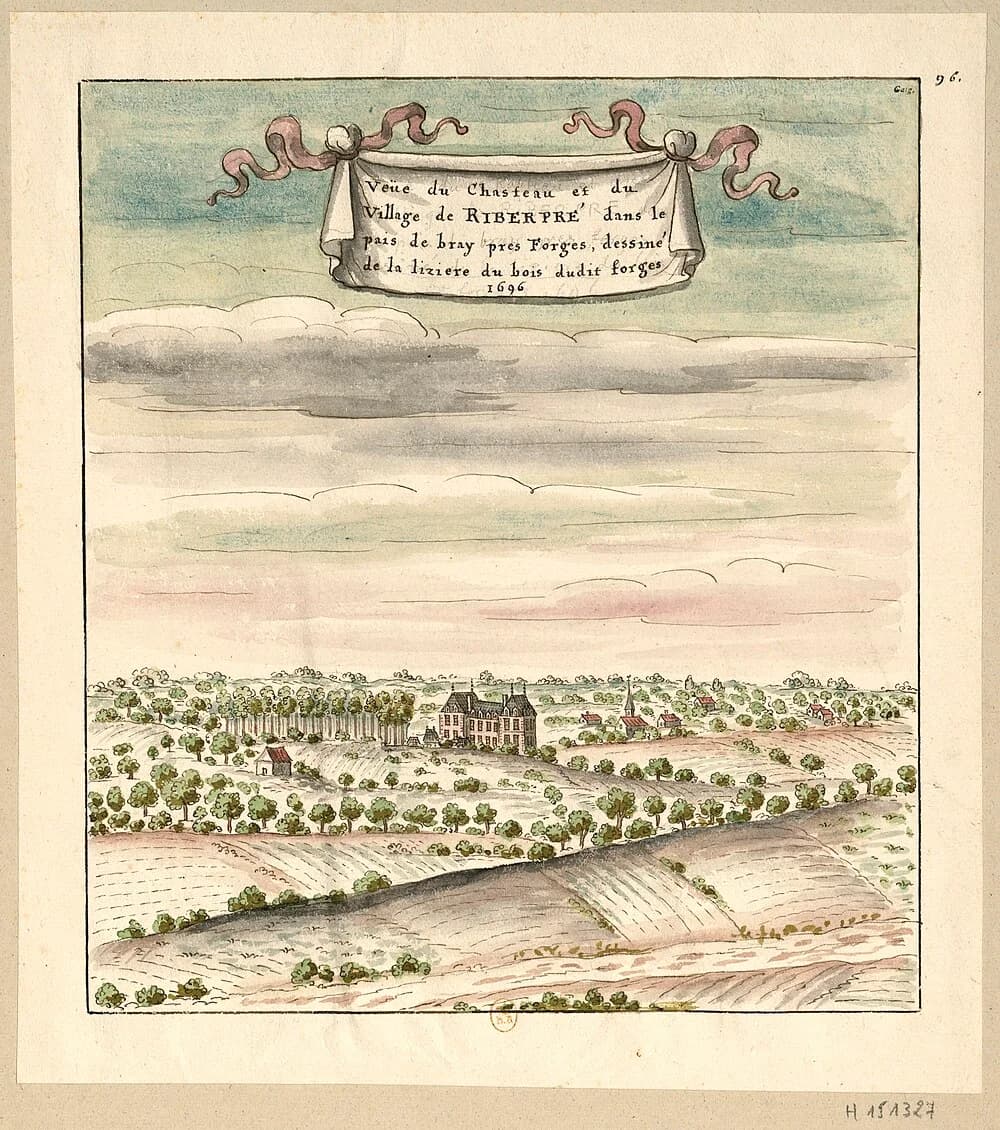 96.
Gaig.
Veüe du Chasteau et du
Village de RIBERPRÉ dans le
païs de bray pres Forges, dessiné
de la liziere du bois dudit forges
1696
H 151327